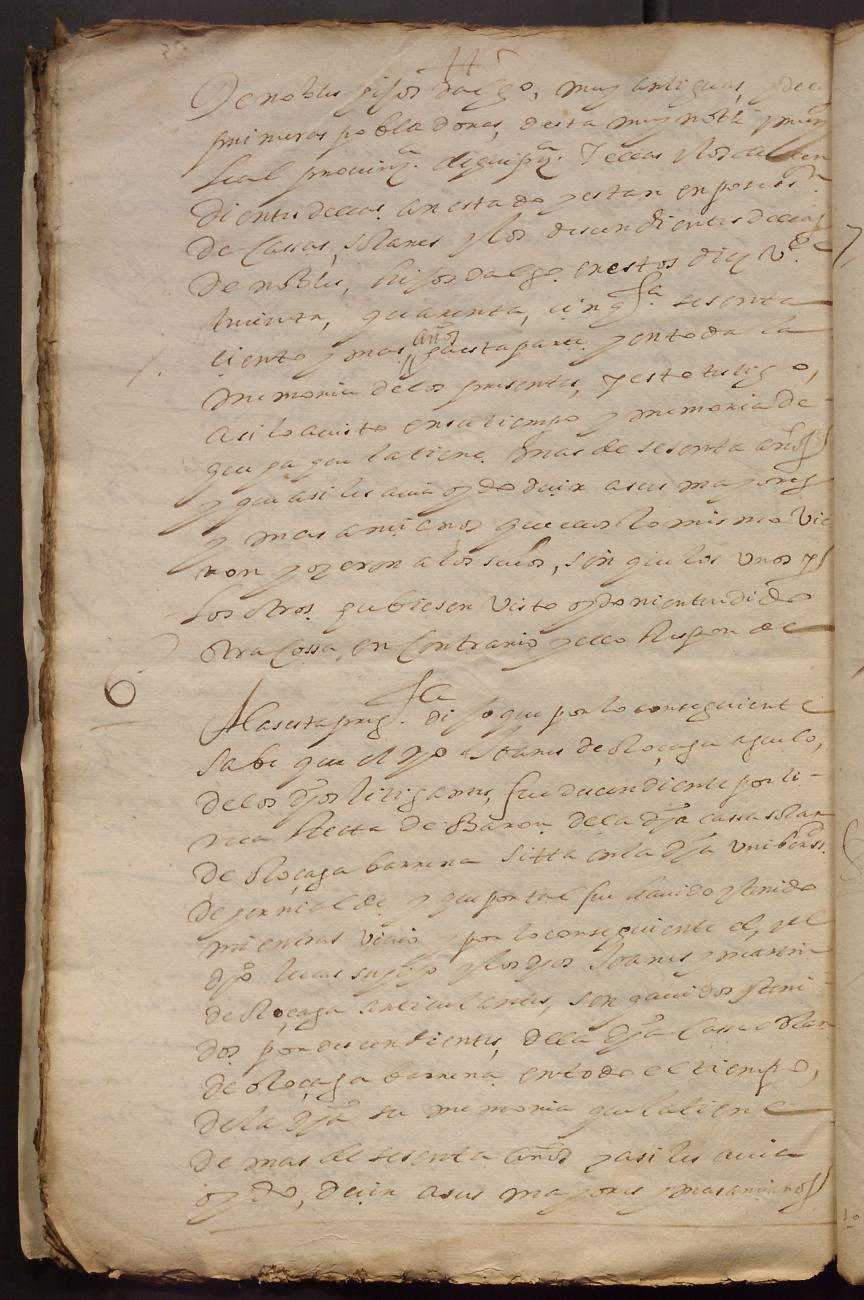 De nobles hijos dalgo, muy antiguas, y de las
primeras pobladoras, desta muy noble y muy
leal provinça de guipza. Y ellas y los descen
dientes dellas an estado y estan en posession
de Cassas, solares y los descendientes dellas
De nobles, hijos dalgo en estos diez Ve.te
treinta, quarenta, cinqta. sesenta
ciento y mas años a esta parte y en toda la
memoria de los presentes, y este testigo,
asi lo a uisto en su tiempo y memoria de
que ha que la tiene mas de sesenta años
y que asi les auia oydo deçir a sus mayores
y mas ançianos que ellos lo mismo Vie
ron y oyeron a los suios, sin que los unos y
Los otros hubiesen Visto oydo ni entendido
otra Cossa, en Contrario y esto Respon de
6
A la sesta pregta. dijo que por lo conseguiente
Sabe que el dho Joanes de Roçaga aguelo,
de los dhos litigantes, fue descendiente por li-
nea Recta de Baron de la dha cassa solar
de Roçaga barrena Sitta en la dha Unibersd.
de y que por tal fue hauido y tenido
mientras Viuio y por lo conseguiente el, y el
dho lucas su hijo y los dhos Joanes y martin
de Roçaga articulantes, son hauidos y teni
dos por descendientes, de la dha Cassa solar
de Roçaga barrena en todo el tiempo,
de la dha su memoria que la tiene
de mas de sesenta años y asi les auia
oydo, deçir a sus mayores y mas ançianos